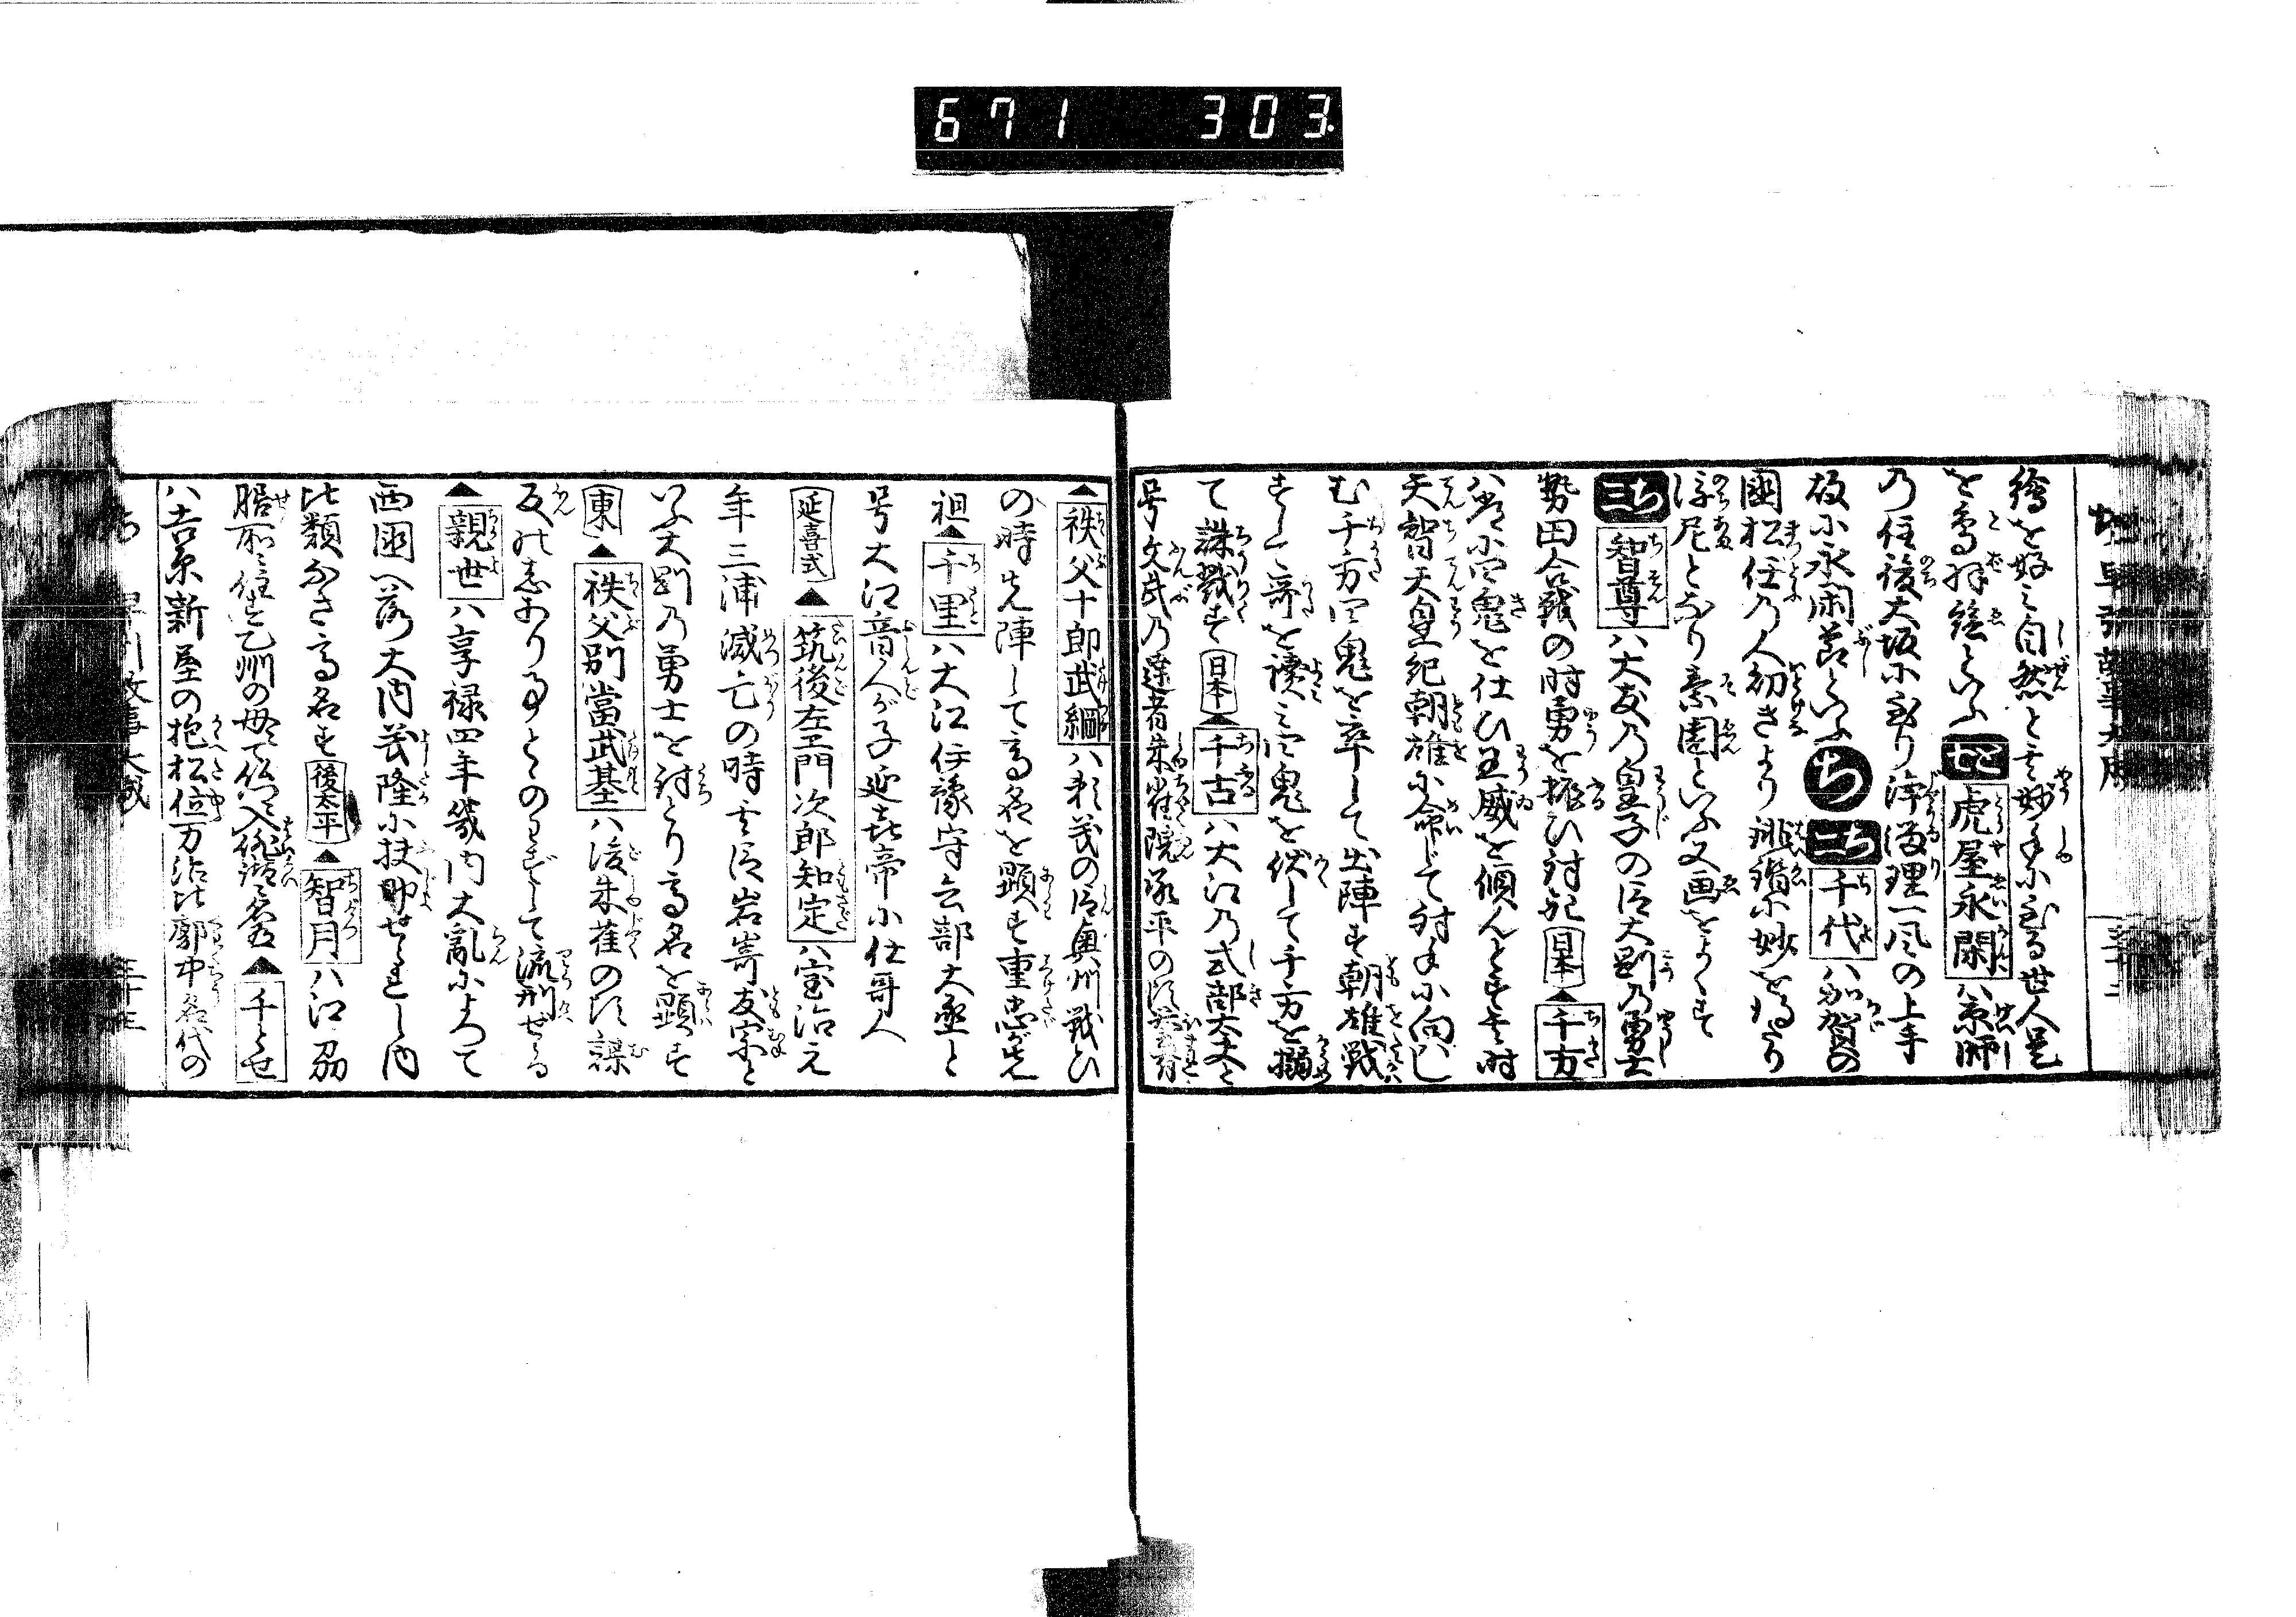 671 303
繪を好み自然と其妙手に至る世人是
を鳥羽絵といふ 虎屋永閑ハ京師
乃住後大坂に至り浄瑠理一風の上手
故に永閑節といふ ち 千代ハ加賀の
國松任乃人初さより誹諧に妙を得たり
後尼となり素園といふ又画をよくす
智尊ハ大友乃皇子の臣大剛乃勇士
勢田合戦の時勇を振ひ討死 日本▲千方
ハ常に四鬼を仕ひ王威を傾んとす其時
天智天皇紀朝雄に命じて討手に向し
む千方四鬼を卒して出陣す朝雄戦
ずして歌を讀み四鬼を伏して千方を搦
て誅戮す 日本▲千古ハ大江乃式部大夫と
号文武乃達者朱雀院承平の頃
▲秩父十郎武綱ハ頼義の臣奥州戦ひ
の時先陣して高名を顕す重忠が先
祖▲千里ハ大江伊豫守兵部大丞と
号大江音人が子延喜帝に仕哥人
延喜式▲筑後左エ門次郎知定ハ宝治元
年三浦滅亡の時其臣岩嵜友宗と
いふ大剛乃勇士を討とり高名を顕す
東▲秩父別當武基ハ後朱雀の頃謀
反の志ありることのわざして流刑せらる
▲親世ハ享禄四年畿内大亂によつて
西國へ落大内義隆に扶助せられし内
比類なき高名す 後太平▲智月ハ江州
膳所に住す乙州の母にて仏に入俳諧名
▲千とせ
ハ吉原新屋の抱松位万治比廓中名代の